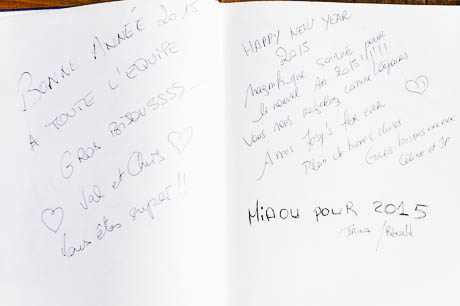 BONNE ANNÉE 2015
A TOUTE L'EQUIPE
GROS BISOUSSSS...
Val et Chris
Vous êtes super!!
HAPPY NEW YEAR
2015
Magnifique soirée pour
le nouvel An 2015!!!!!!
Vous nous régalez comme toujours
Ames Josy's for ever
Plein de bonnes choses
Gros bisous
Céline et JP
MIAOU POUR 2015
IRINA / Renald